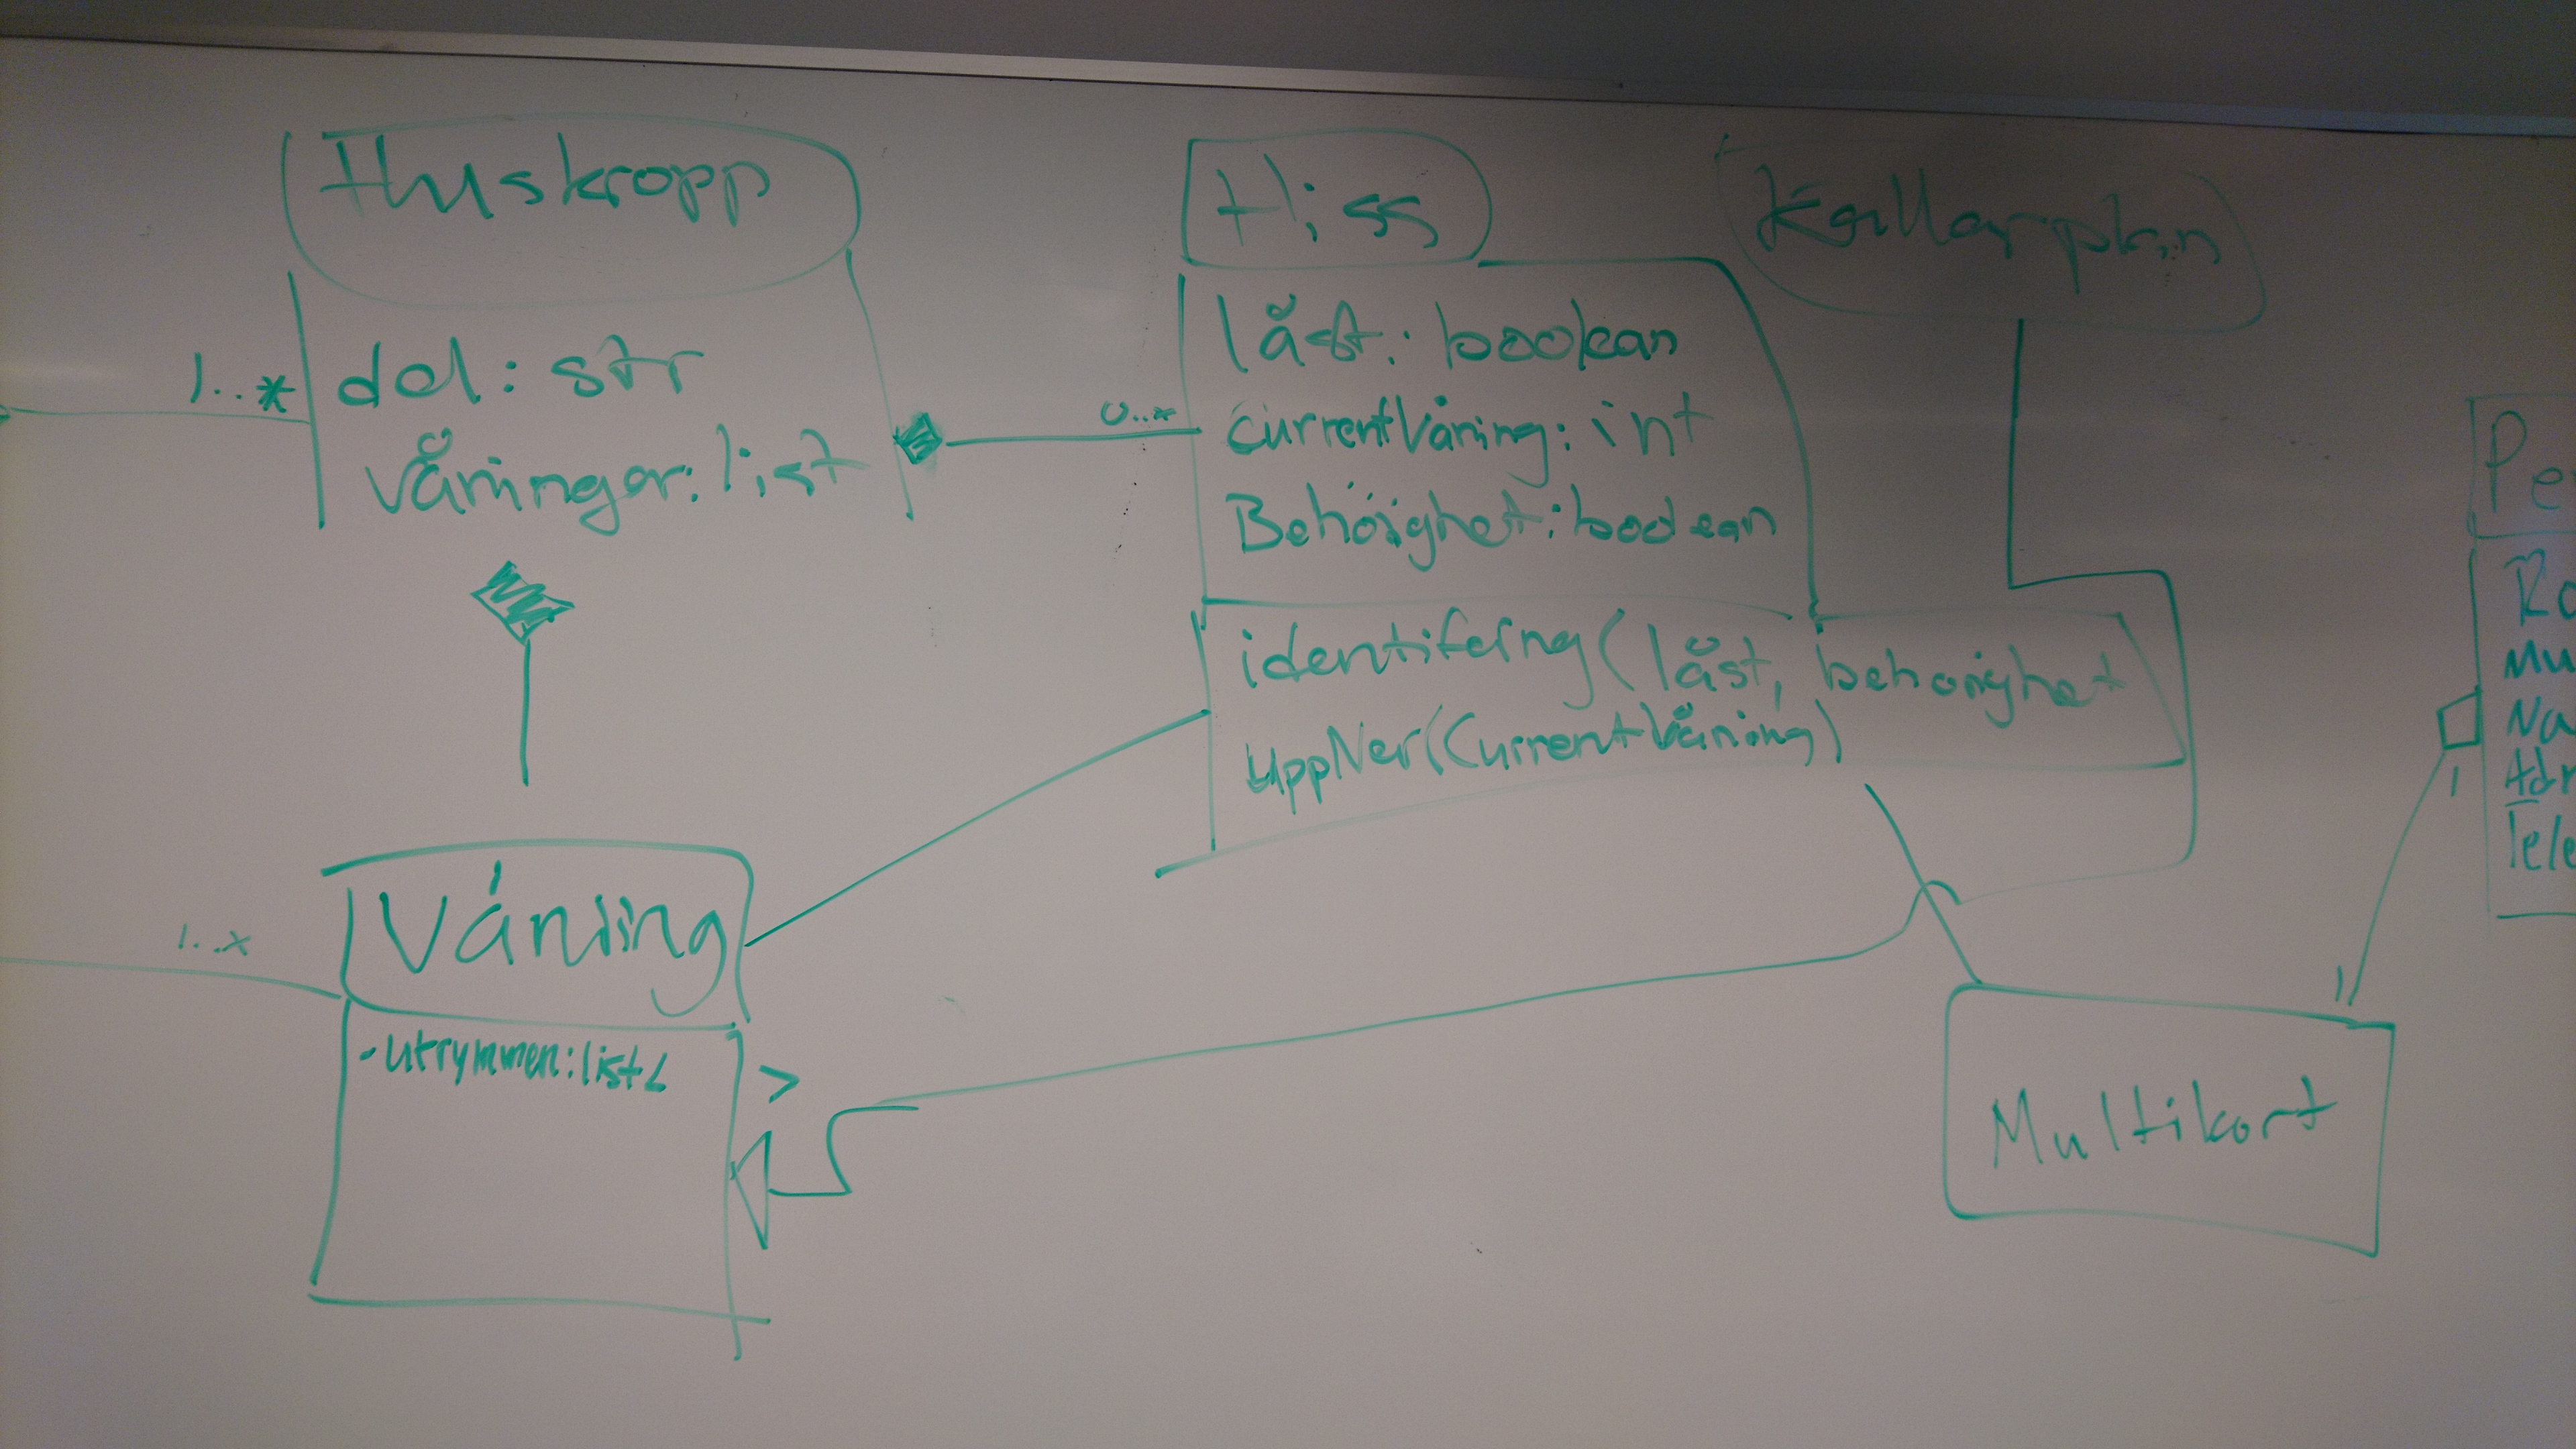 Huskropp
1..*
del: str
våningar: list
Hiss
0..*
låst: boolean
currentVåning: int
Behörighet: boolean
identifering(låst, behörighet
uppNer(CurrentVåning)
Källarplan
Våning
1..*
-utrymmen: list<
>
Multikort
1
1
Pe
Ro
Mu
Na
Adr
Tele